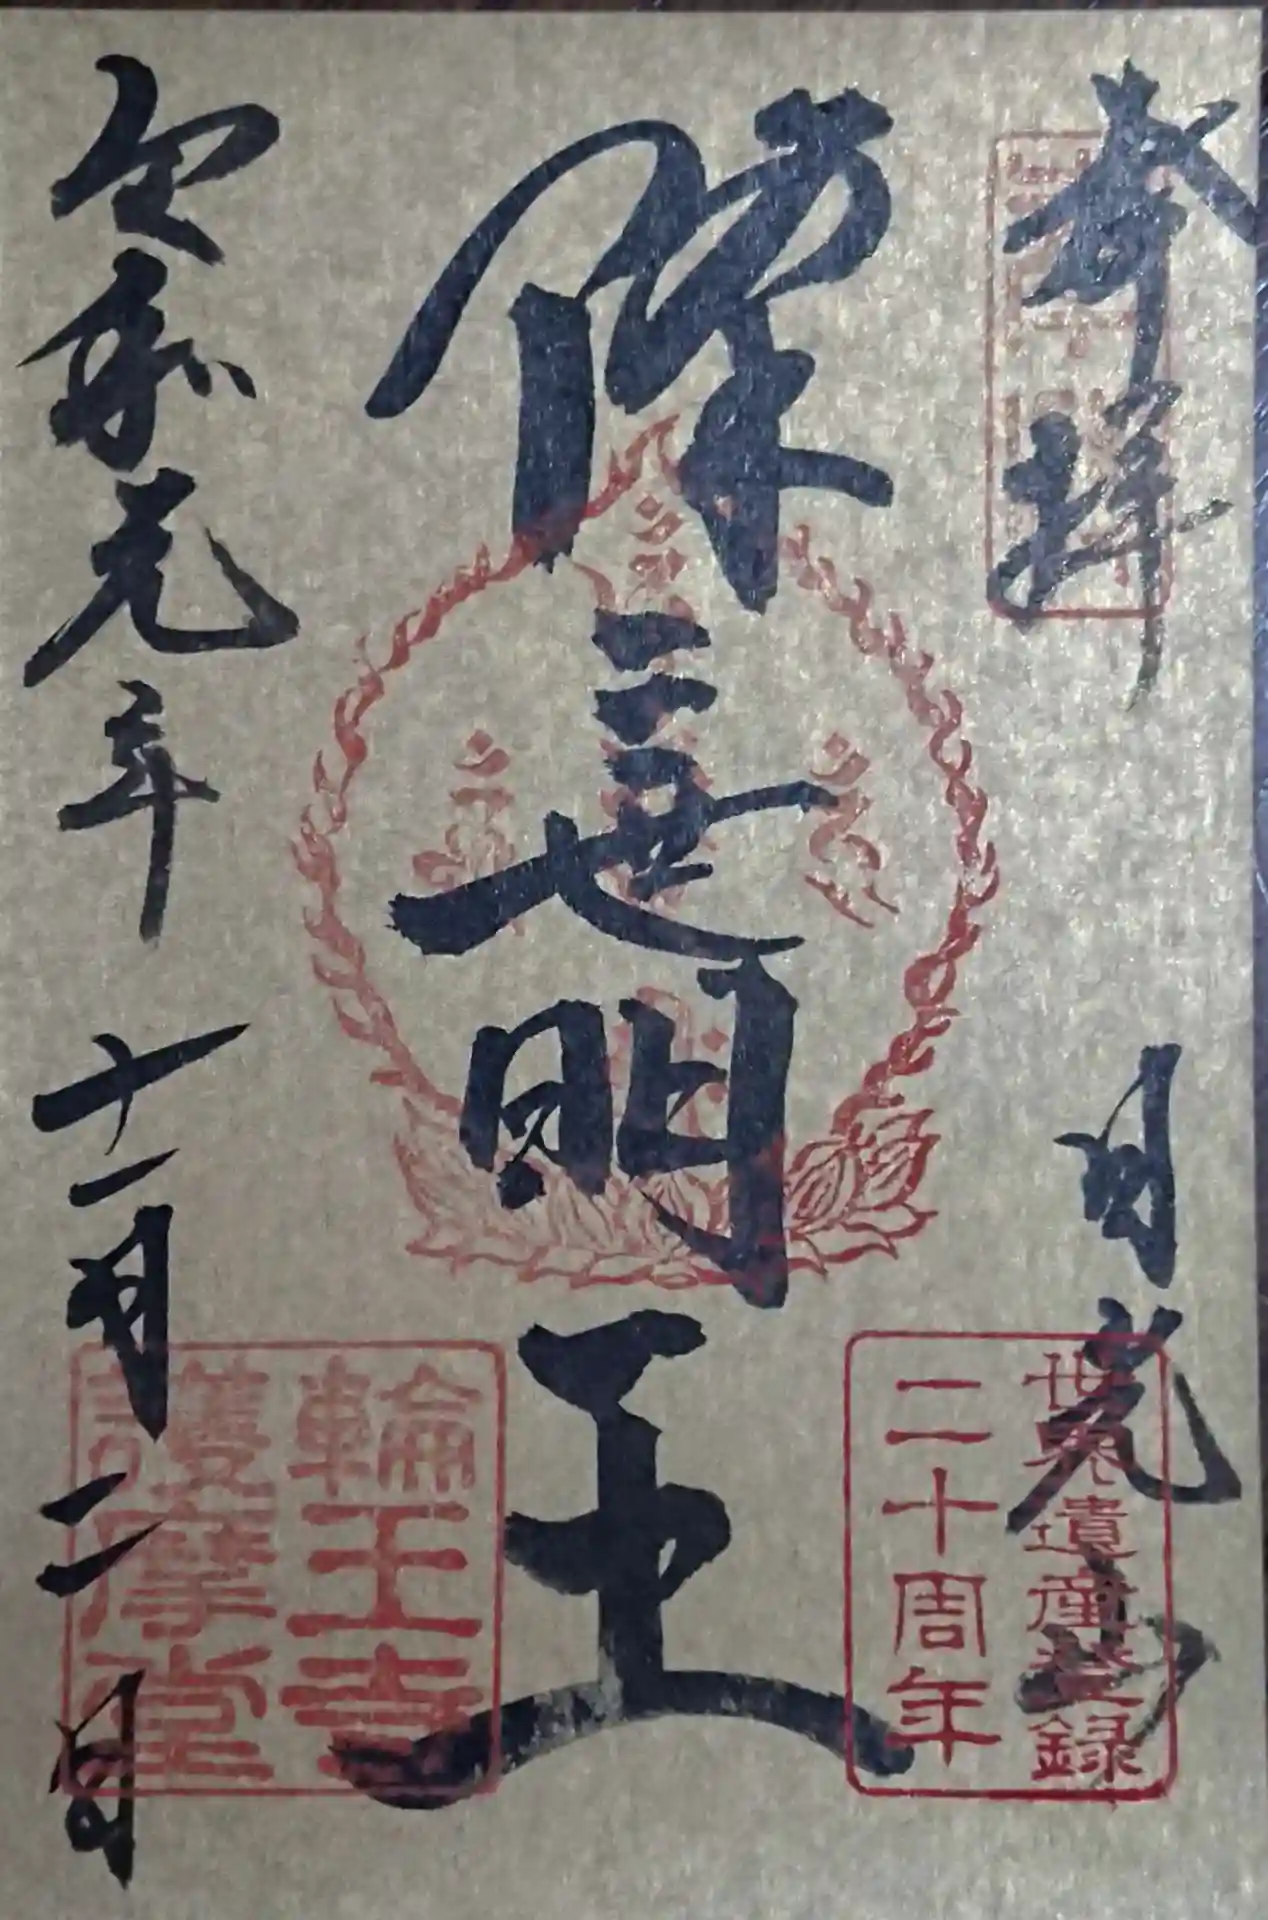 奉拝
日光山
世界遺産登録
二十周年
降三世明王
輪王寺
護摩堂
令和元年十一月二日